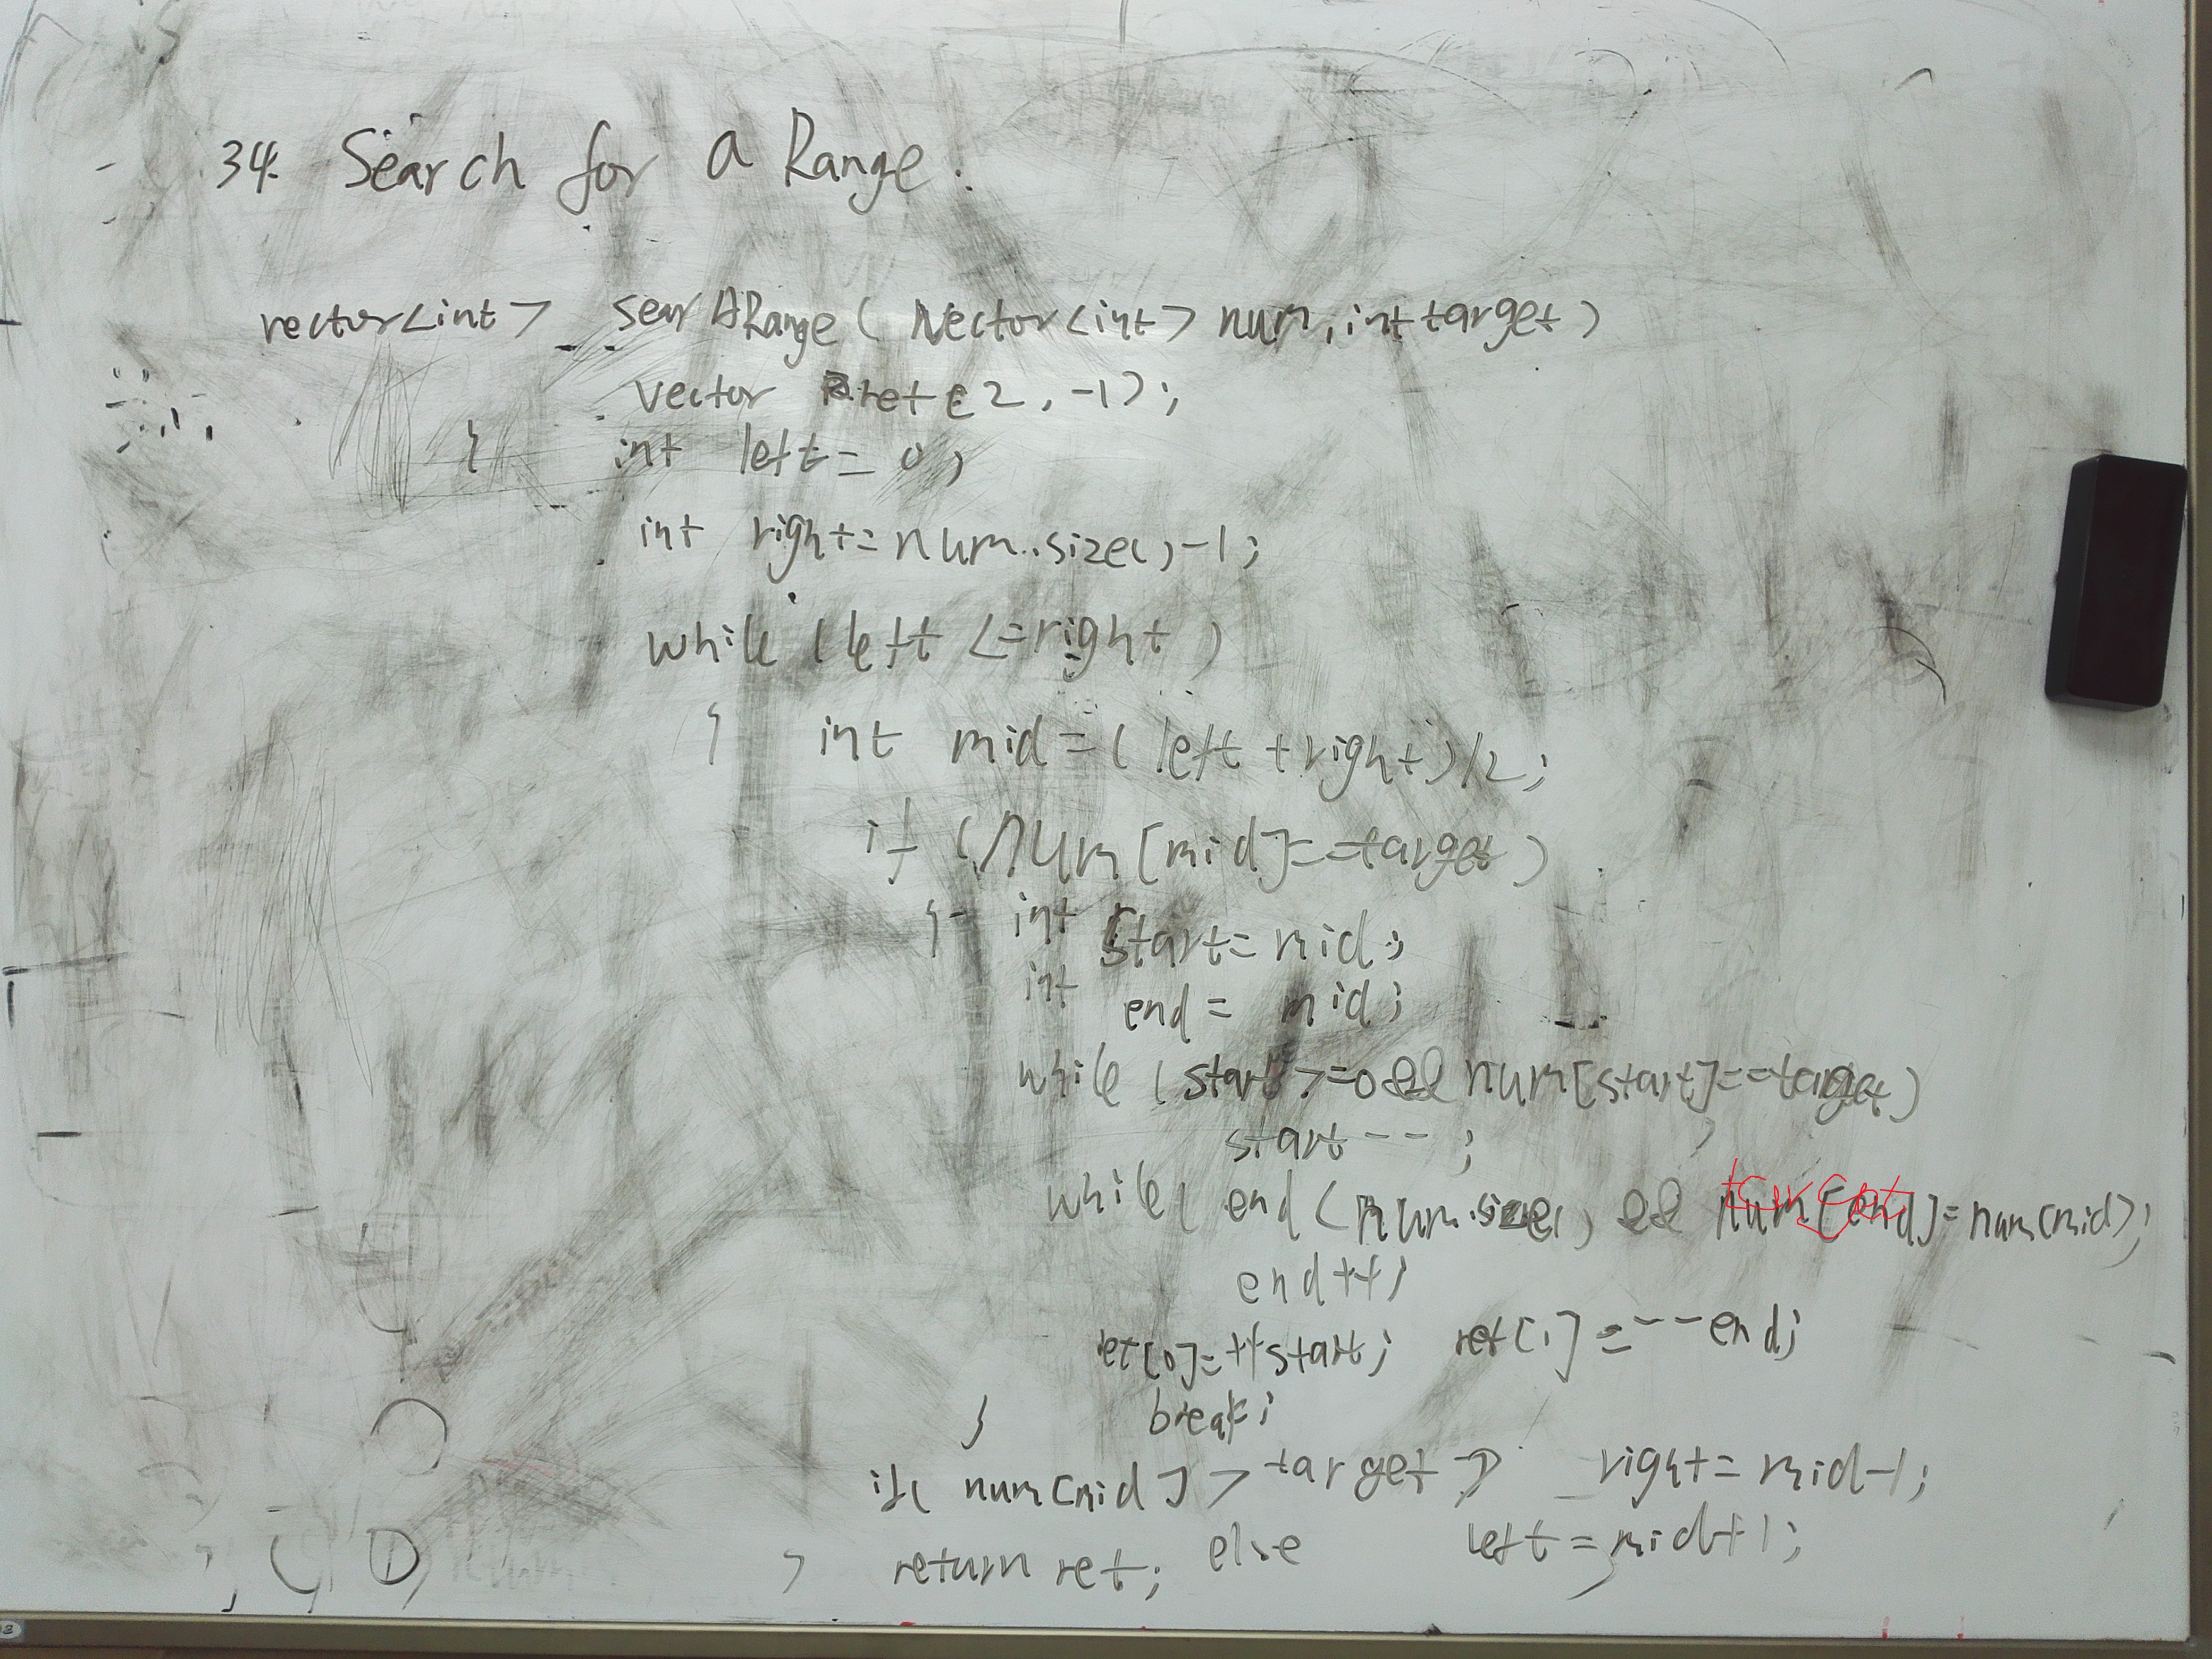 34. Search for a Range.
vector<int> sear Range ( Vector<int> num, int target )
vector ret(2, -1);
{ int left = 0;
int right = num.size()-1;
while (left <= right )
{ int mid = ( left + right)/2;
if (num[mid]==target )
{ int start = mid;
int end = mid;
while (start >=0 && num[start]==target)
start--;
while( end < num.size() && num[end]=num[mid);
target
end++;
ret[0]=++start; ret[1] = --end;
} break;
if( num[mid] > target ) right = mid-1;
} return ret; else left = mid+1;